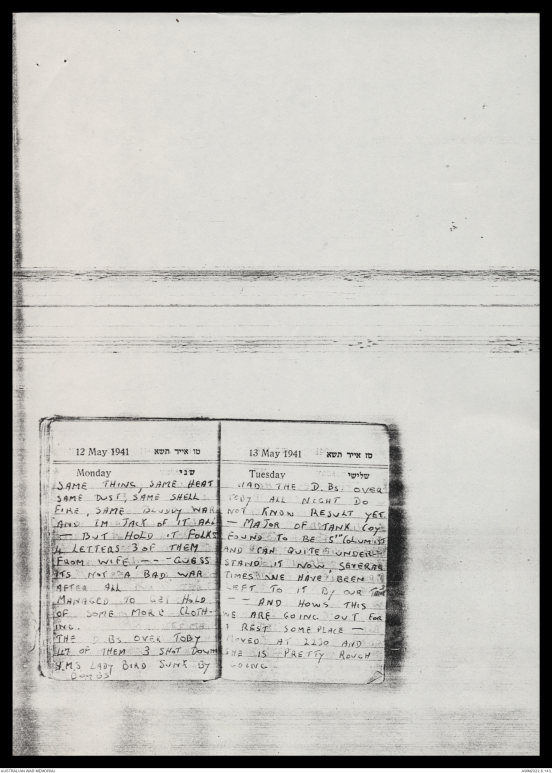 12 May 1941 טו אייר תשא
Monday שני
SAME THING, SAME HEAT
SAME DUST, SAME SHELL
FIRE, SAME BLOODY WAR
AND IM JACK OF IT ALL
— BUT HOLD IT FOLKS
4 LETTERS 3 OF THEM
FROM WIFE, — — GUESS
ITS NOT A BAD WAR
AFTER ALL
MANAGED TO GET HOLD
OF SOME MORE CLOTH-
ING.
THE D.BS. OVER TOBY
47 OF THEM 3 SHOT DOWN
H.M.S LADY BIRD SUNK BY
BOMBS
13 May 1941 טז אייר תשא
Tuesday שלישי
HAD THE D.Bs OVER
TOBY ALL NIGHT DO
NOT KNOW RESULT YET
— MAJOR OF TANK COY
FOUND TO BE 5TH COLUMIST
AND CAN QUITE UNDER-
STAND IT NOW, SEVERAL
TIMES WE HAVE BEEN
LEFT TO IT BY OUR
— — AND HOWS THIS
WE ARE GOING OUT FOR
A REST SOME PLACE —
MOVED AT 2230 AND
SHE IS PRETTY ROUGH
GOING
AUSTRALIAN WAR MEMORIAL